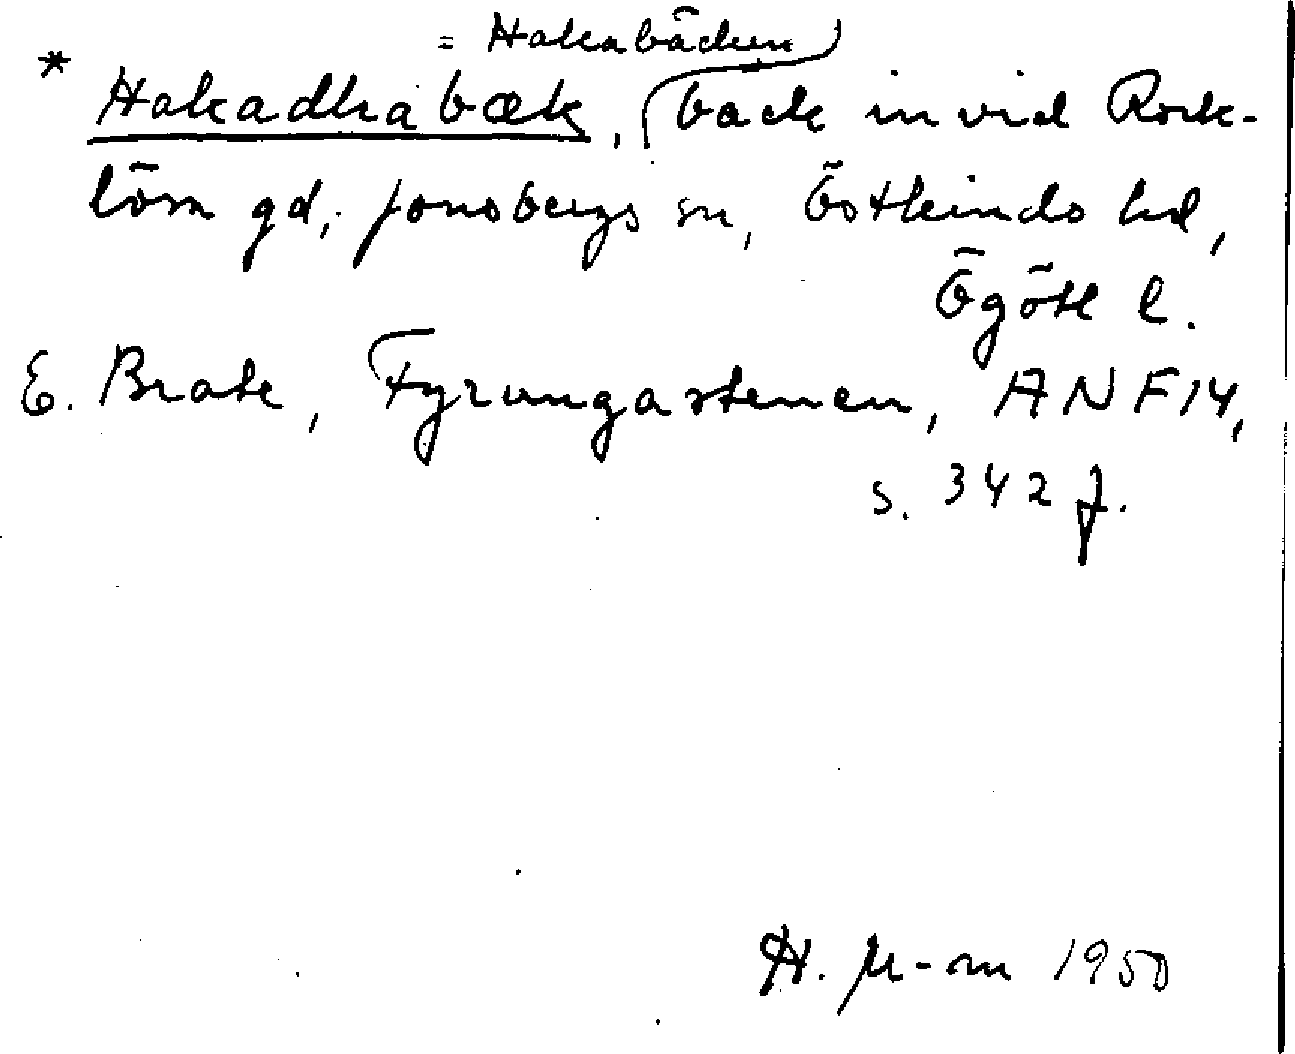 = Hakabäcken
* Hakadhabæk, back invid Rörk-
löm gd, Jonsbergs sn, Östkinds hd,
Ögötl l.
E. Brate, Fyrungastenen, ANF 14,
s. 342 f.
H. M-m 1950